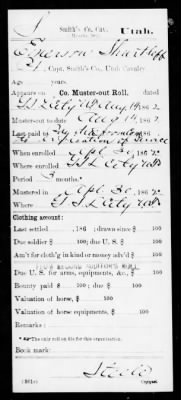 S Smith's Co. Cav. Utah.
Emerson Shurtliff
Pvt., Capt. Smith's Co., Utah Cavalry.
Age years.
Appears on Co. Muster-out Roll, dated
G. S. L. City U.T. Aug 14, 1862.
Muster-out to date Aug 14, 1862.
Last paid to
expiration of service
When enrolled Apl 30, 1862.
Where enrolled G S L City U.T.
Period 3 months.
Mustered in Apl 30, 1862.
Where G S L City U.T.
Clothing account:
Last settled , 186 ; drawn since $ 100
Due soldier $ 100; due U. S. $ 100
Am't for cloth'g in kind or money adv'd $ 100
Due U. S. for arms, equipments, &c., $ 100
Bounty paid $ 100; due $ 100
Valuation of horse, $ 100
Valuation of horse equipments, $ 100
Remarks:
Book mark:
Steele
(361c) Copyist.